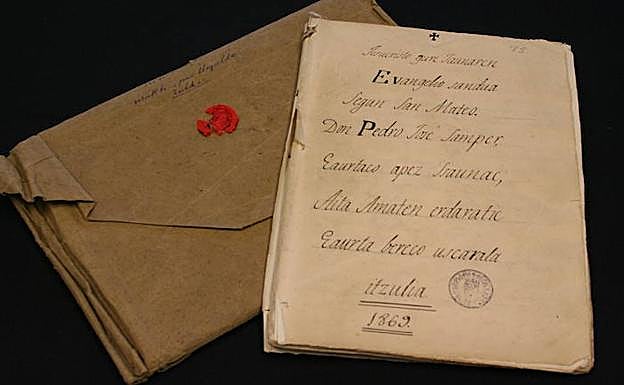 Jesucristo gure Jaunaren
Evangelio sandua
Segun San Mateo.
Don Pedro José Samper,
Eaurtaco apez Jaunac,
Aita Amaten erdaratic
Eaurta bereco uscarala
itzulia
1869.